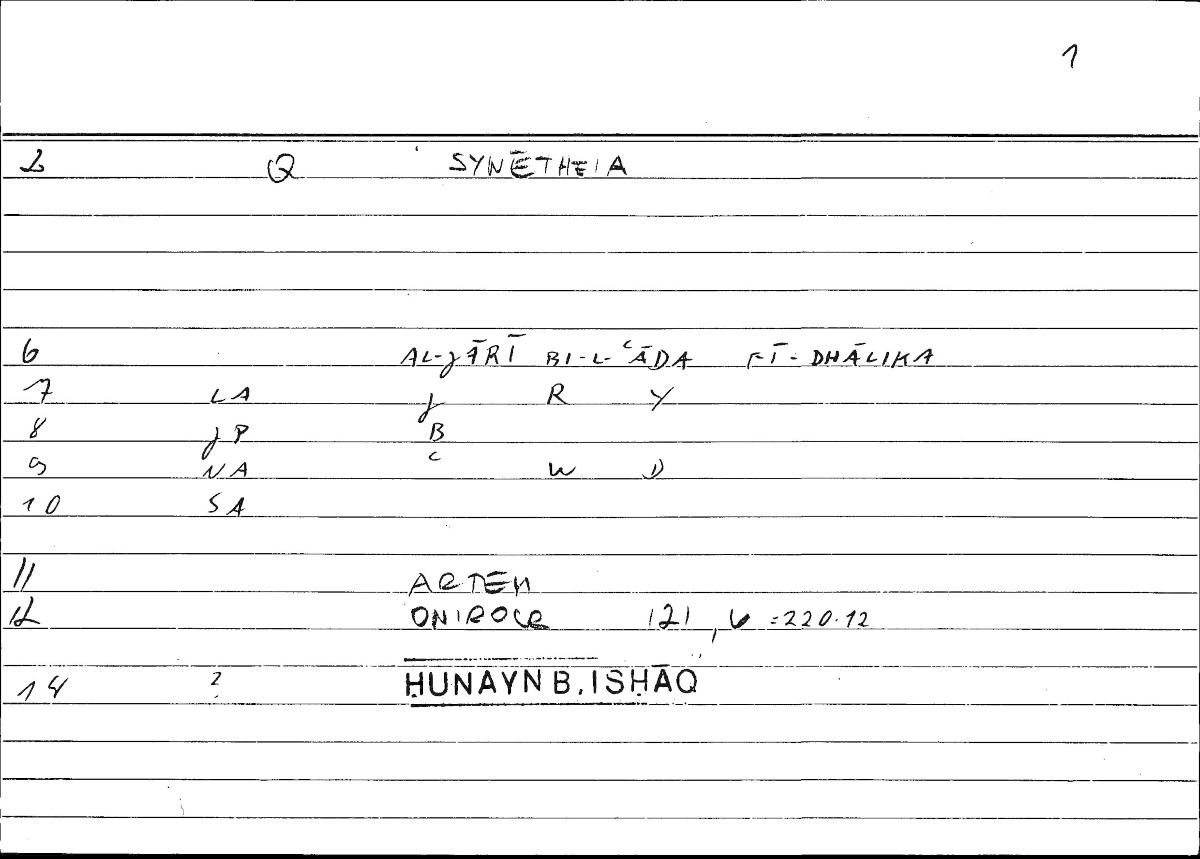 1
2 Q SYNĒTHEIA
6 AL-JĀRĪ BI-L-ʿĀDA FĪ-DHĀLIKA
7 LA J R Y
8 JP B
9 NA ʿ W D
10 SA
11 ARTEM
12 ONIROCR 121,6 =220.12
14 2 ḤUNAYN B. ISḤĀQ